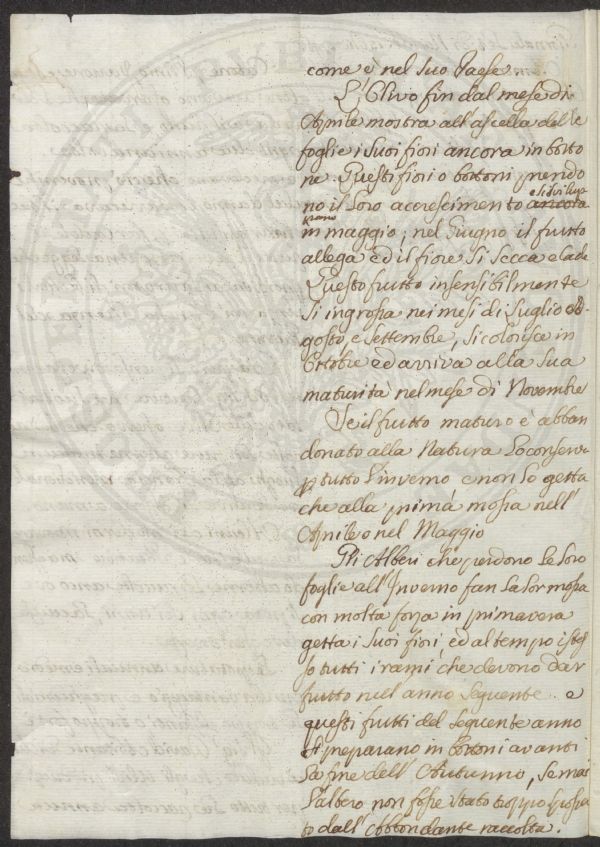 come è nel suo Paese.
L'Olivo fin dal mese di
Aprile mostra all'ascella delle
foglie i suoi fiori ancora in botto
ne. Questi fiori o bottoni prendo
no il loro accrescimento ancora e si svilup
pano
in maggio; nel Giugno il frutto
allega ed il fiore si secca e cade
Questo frutto insensibilmente
si ingrossa nei mesi di Luglio Ag-
gosto, e Settembre, si colorisce in
Ottobre ed arriva alla sua
maturità nel mese di Novembre
Se il frutto maturo è abban
donato alla Natura lo conserva
p tutto l'inverno e non lo getta
che alla prima mossa nell'
Aprile o nel Maggio
Gli Alberi che perdono le loro
foglie all'Inverno fan la lor mossa
con molta forza in primavera
getta i suoi fiori, ed al tempo istes
so tutti i rami che devono dar
frutto nell'anno seguente. e
questi frutti del seguente anno
si preparano in bottoni avanti
la fine dell'Autunno, se mai
l'albero non fosse stato troppo sposa
to dall'abbondante raccolta.